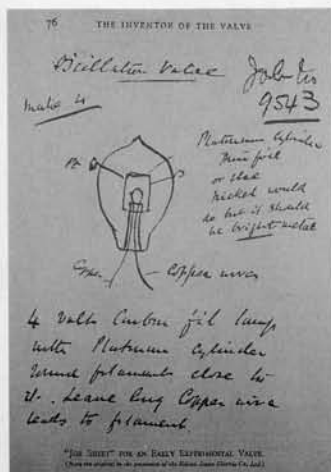 76 THE INVENTOR OF THE VALVE
Oscillation Valve
Job No
9543
make 4
Platinum Cylinder
thin foil
or else
nickel would
do but it should
be bright metal
Pt
Copper
Copper wires
4 Volts Carbon fil lamp
with Platinum cylinder
round filaments close to
it. Leave long Copper wire
leads to filament.
"JOB SHEET" FOR AN EARLY EXPERIMENTAL VALVE.